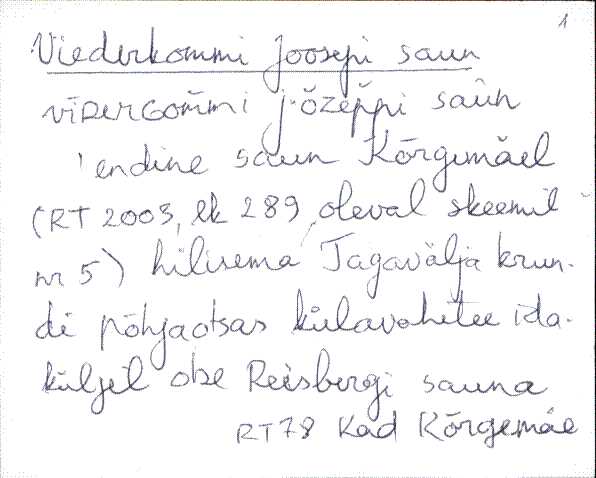 1
Viederkommi Joosepi saun
vīDerGom̆mi j·ŏzĕp̆pi saùn
'endine saun Kõrgemäel
(RT 2003, lk 289 oleval skeemil
nr 5) hilisema Tagavälja krun-
di põhjaotsas külavahetee ida-
küljel otse Reisbergi sauna
RT78 Kad Kõrgemäe